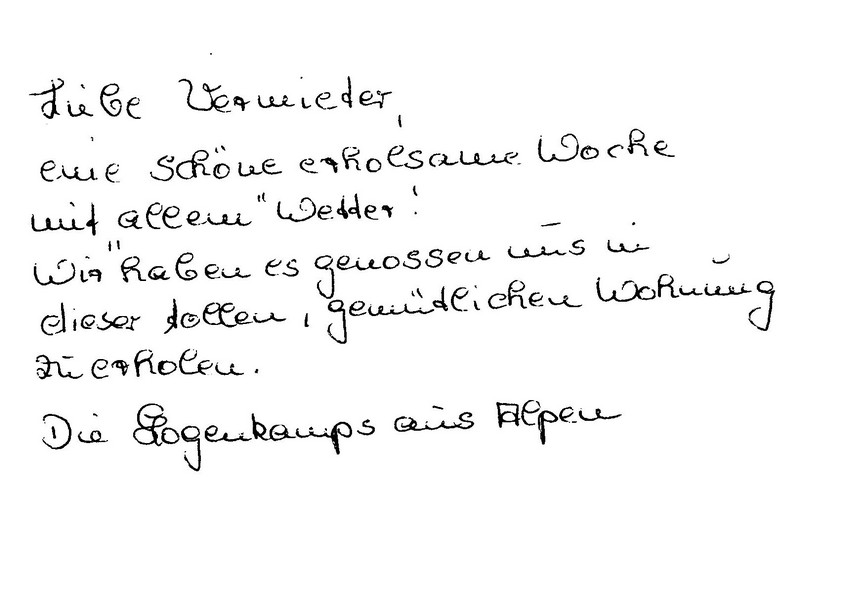 Liebe Vermieder,
eine schöne erholsame Woche
mit allem "Wetter"!
Wir haben es genossen uns in
dieser tollen, gemütlichen Wohnung
zu erholen.
Die aus Alpen